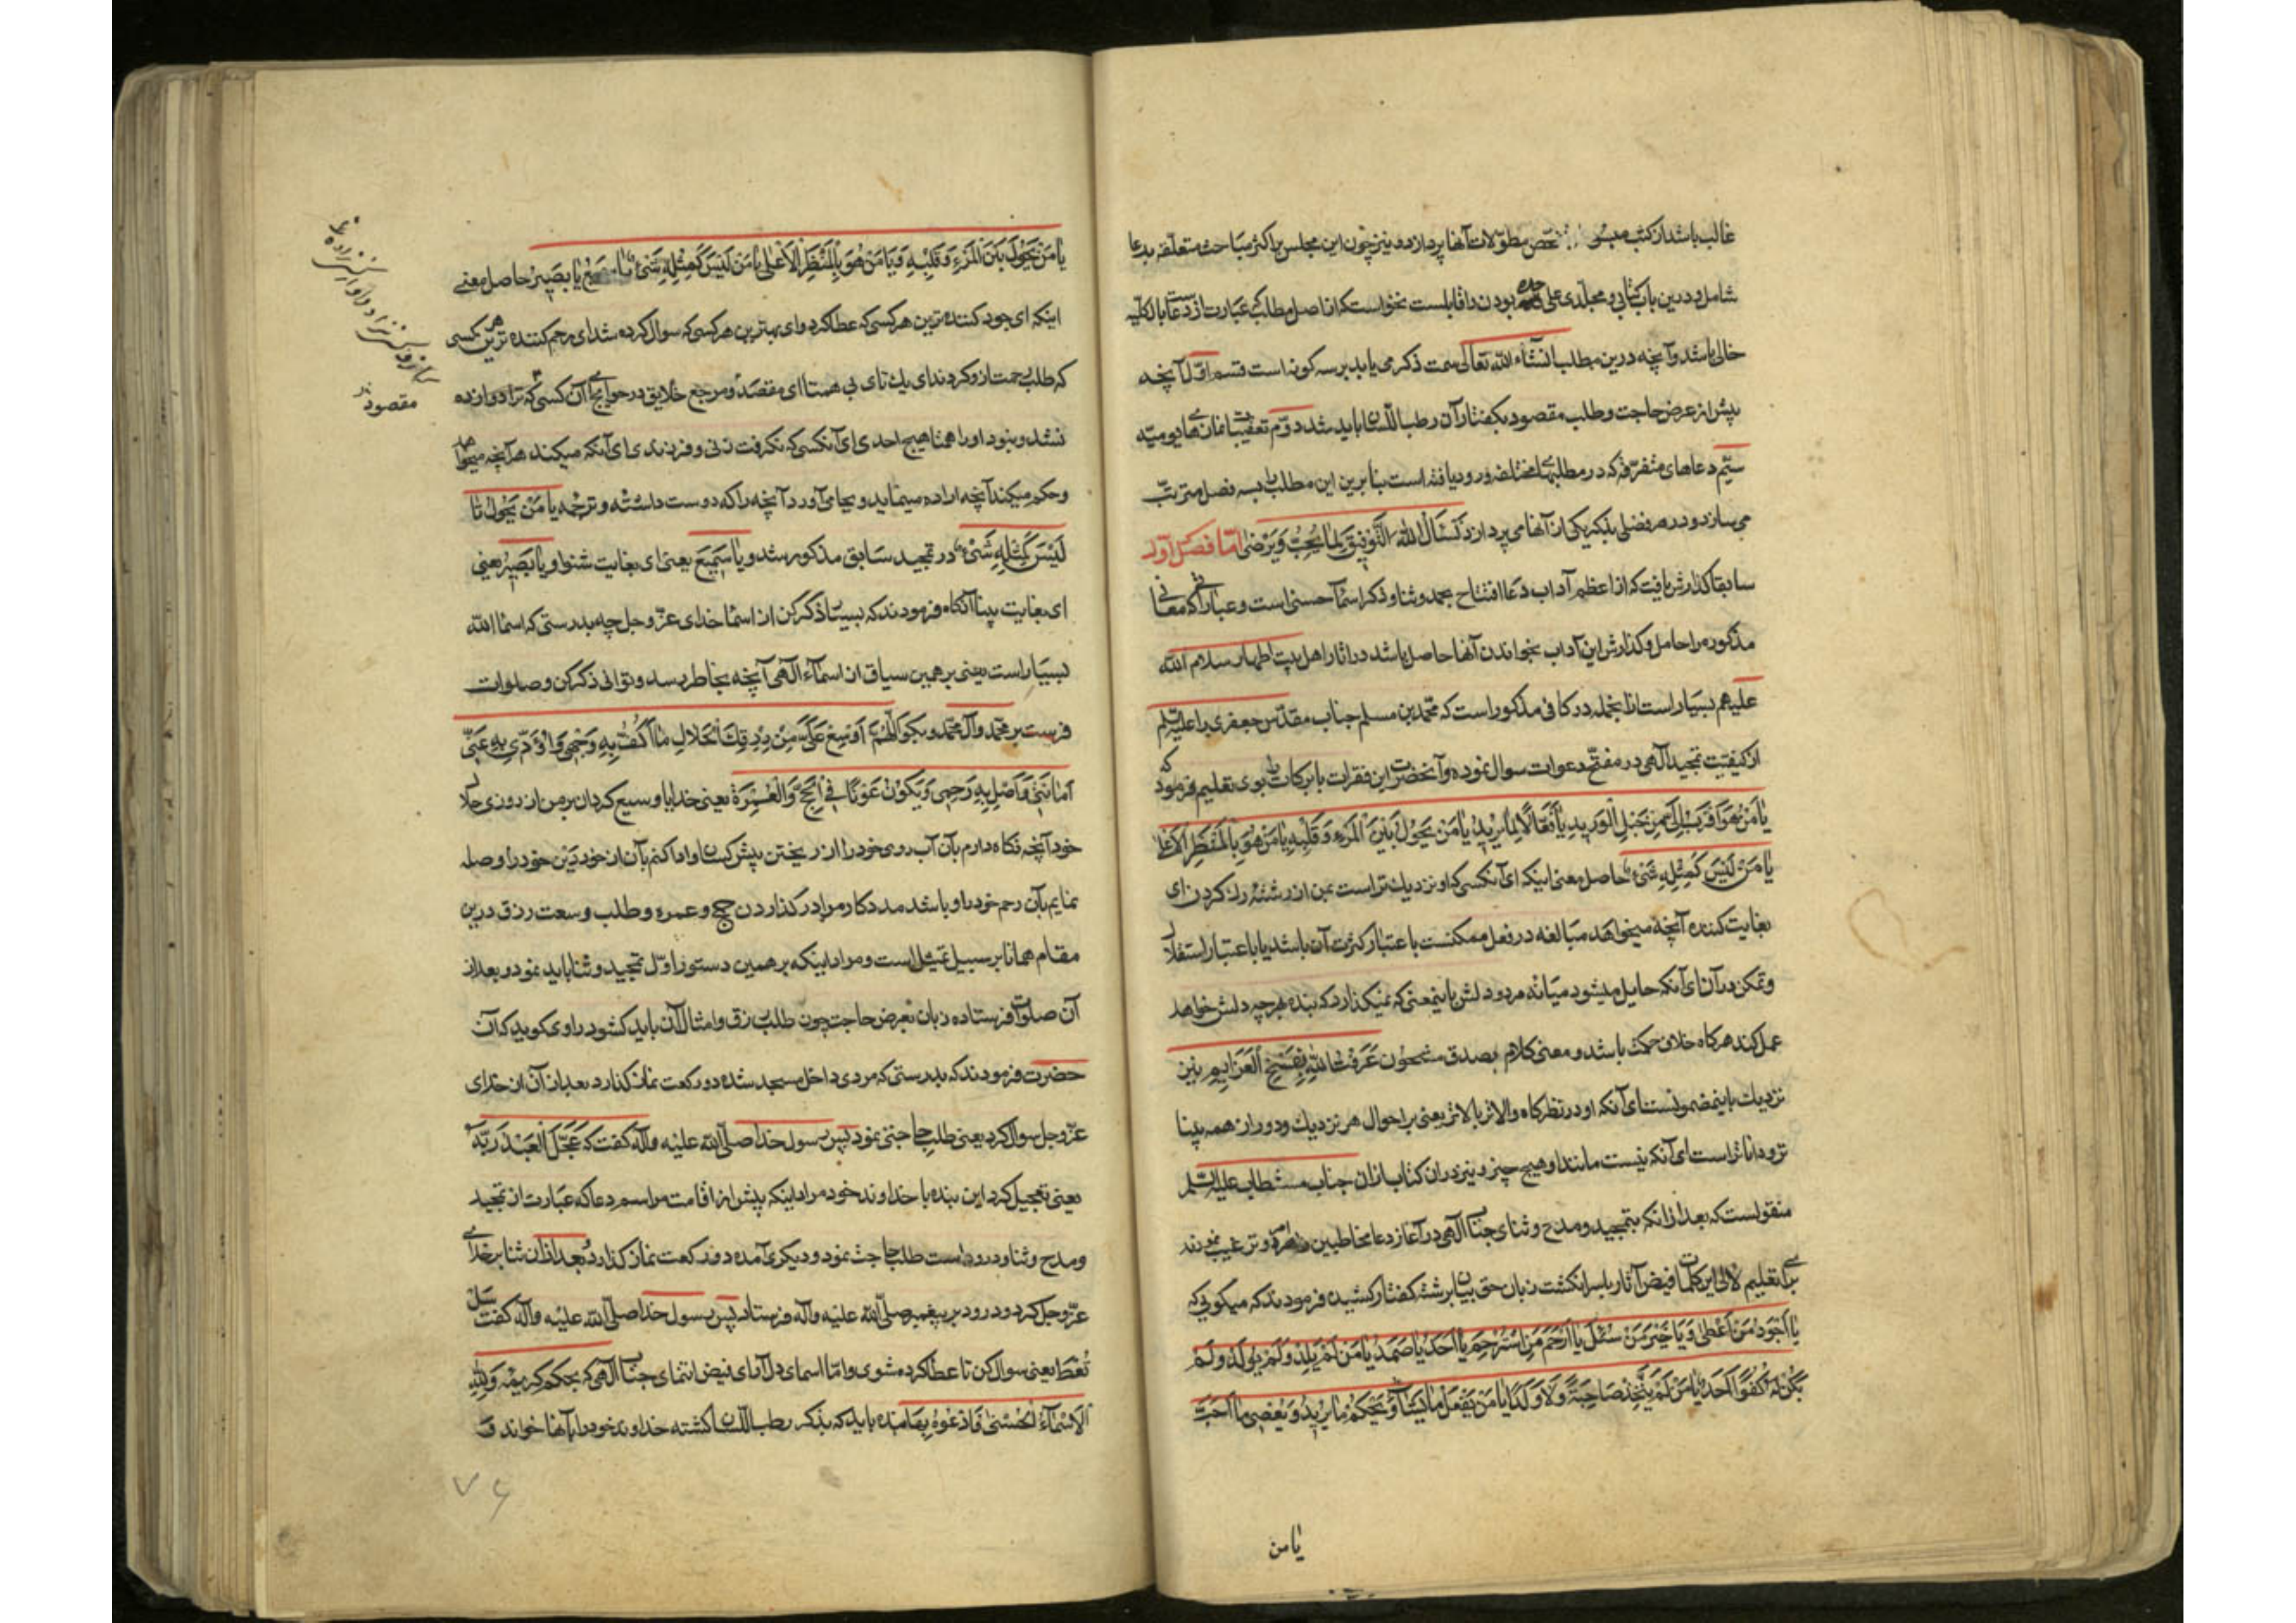 غالب باشد از کتب مطولات آنها پردازد و نیز چون این مجلس با کثر مباحث متعلقه بدعا
شامل و درین باب کتابی و مجلدی علی حده بودن را قابلست نخواست که از اصل مطالب که عبارت از دعا است بالکلیه
خالی باشد و آنچه درین مطلب انشاء الله تعالی سمت ذکر می یابد بر سه کونه است قسم اول آنچه
پیش از عرض حاجت و طلب مقصود بکفتار آن رطب اللسان باید شد دوم تعقیبات نمازهای یومیه
سیم دعاهای متفرقه که در مطلبهای مختلفه ورود یافته است بنابرین این مطلب را بسه فصل مترتب
می سازد و در هر فصلی بذکر یکی از آنها می پردازد نَسْئَالُ اللهَ التَّوْفیقَ لِمَا یُحِبُّ وَ یَرْضی اما فصل اول
سابقا کذارش یافت که از اعظم آداب دعا افتتاح بحمد و ثنا و ذکر اسماء حسنی است و عباراتی که معانی
مذکوره را حامل و کذارش این آداب بخواندن آنها حاصل باشد در آثار اهل بیت اطهار سلام الله
علیهم بسیار است از آنجمله در کافی مذکور است که محمد بن مسلم جناب مقدس جعفری را علیه السلم
از کیفیت تمجید الهی در مفتتح دعوات سوال نموده و آنحضرت این فقرات با برکات را بوی تعلیم فرمود که
یٰا مَنْ هُوَ اَقْرَبُ اِلَیَّ مِنْ حَبْلِ الْوَرِیدِ یٰا فَعّٰالاً لِمٰا یُرِیدُ یٰا مَنْ یَحُولُ بَیْنَ الْمَرْءِ وَ قَلْبِهِ یٰا مَنْ هُوَ بِالْمَنْظَرِ الْاَعْلیٰ
یٰا مَنْ لَیْسَ کَمِثْلِهِ شَیْءٌ حاصل معنی اینکه ای آنکسی که او نزدیک تر است بمن از رشته رک کردن ای
بغایت کننده آنچه میخواهد مبالغه در فعل ممکنست باعتبار کثرت آن باشد یا باعتبار استقلال
و تمکن در آن ای آنکه حایل میشود میانه مرد و دلش باینمعنی که نمیکذارد که بنده هر چه دلش خواهد
عمل کند هرکاه خلاف حکمت باشد و معنی کلام بصدق مشحون عَرَفْتُ اللهَ بِفَسْخِ الْعَزَایِمِ نیز
نزدیک باینمضمونست ای آنکه او در نظرکاه والاتر بالاتر یعنی بر احوال هر نزدیک و دور از همه بینا
تر و داناتر است ای آنکه نیست مانند او هیچ چیز و نیز در آن کتاب از آن جناب مستطاب علیه السلم
منقولست که بعد از آنکه بتمجید و مدح و ثنای جناب الهی در آغاز دعا مخاطبین را امر و ترغیب نمودند
برای تعلیم لآلی این کلمات فیض آثار را بسر انکشت زبان حق بیان برشته کفتار کشیده فرمودند که میکویی که
یٰا اَجْوَدَ مَنْ اَعْطیٰ وَ یٰا خَیْرَ مَنْ سُئِلَ یٰا اَرْحَمَ مَنِ اسْتُرْحِمَ یٰا اَحَدُ یٰا صَمَدُ یٰا مَنْ لَمْ یَلِدْ وَ لَمْ یُولَدْ وَ لَمْ
یَکُنْ لَهُ کُفُوًا اَحَدٌ یٰا مَنْ لَمْ یَتَّخِذْ صٰاحِبَةً وَ لٰا وَلَدًا یٰا مَنْ یَفْعَلُ مٰا یَشٰاءُ وَ یَحْکُمُ مٰا یُرِیدُ وَ یَقْضِی مٰا اَحَبَّ
یٰا من
یٰا مَنْ یَحُولُ بَیْنَ الْمَرْءِ وَ قَلْبِهِ وَ یٰا مَنْ هُوَ بِالْمَنْظَرِ الْاَعْلیٰ یٰا مَنْ لَیْسَ کَمِثْلِهِ شَیْءٌ یٰا سَمِیعُ یٰا بَصِیرُ حاصل معنی
اینکه ای جود کننده ترین هر کسی که عطا کرد و ای بهترین هر کسی که سوال کرده شد ای رحم کننده ترین هر کسی
که طلب رحمت ازو کردند ای یک تای بی همتا ای مقصد و مرجع خلایق در حوایج ای آن کسی که نزاد و زاده
نشد و نبود او را همتا هیچ احدی ای آنکسی که نکرفت زنی و فرزندی ای آنکه میکند هر آنچه میخواهد
و حکم میکند آنچه اراده مینماید و بجا می آورد آنچه را که دوست داشته و ترجمه یٰا مَنْ یَحُولُ تا
لَیْسَ کَمِثْلِهِ شَیْءٌ در تمجید سابق مذکور شد و یٰا سَمِیعُ یعنی ای بغایت شنوا و یٰا بَصِیرُ یعنی
ای بغایت بینا آنکاه فرمودند که بسیار ذکر کن از اسماء خدای عز و جل چه بدرستی که اسماء الله
بسیار است یعنی بر همین سیاق از اسماء الهی آنچه بخاطر رسد و توانی ذکر کن و صلوات
فرست بر محمد و آل محمد و بکو اَللّٰهُمَّ اَوْسِعْ عَلَیَّ مِنْ رِزْقِکَ الْحَلالِ مٰا اَکُفُّ بِهِ وَجْهِی وَ اُؤَدِّی بِهِ عَنِّی
اَمٰانَتِی وَ اَصِلُ بِهِ رَحِمِی وَ یَکُونُ عَوْنًا فِی الْحَجِّ وَ الْعُمْرَةِ یعنی خدایا وسیع کردان بر من از روزی حلال
خود آنچه نکاه دارم بآن آب روی خود را از ریختن پیش کسان و ادا کنم بآن از خود دین خود را و صله
نمایم بآن رحم خود را و باشد مددکار مرا در کذاردن حج و عمره و طلب وسعت رزق درین
مقام همانا بر سبیل تمثیل است و مراد اینکه بر همین دستور اول تمجید و ثنا باید نمود و بعد از
آن صلوات فرستاده زبان بعرض حاجت چون طلب رزق و امثال آن باید کشود راوی کوید که آن
حضرت فرمودند که بدرستی که مردی داخل مسجد شده دو رکعت نماز کذارد بعد از آن از خدای
عز و جل سوال کرد یعنی طلب حاجتی نمود پس رسول خدا صلی الله علیه و آله کفت که عَجَّلَ الْعَبْدُ رَبَّهُ
یعنی تعجیل کرد این بنده با خداوند خود مراد اینکه پیش از اقامت مراسم دعا که عبارت از تمجید
و مدح و ثنا و درود است طلب حاجت نمود و دیکری آمده دو رکعت نماز کذارد و بعد از آن ثنا بر خدای
عز و جل کرد و درود بر پیغمبر صلی الله علیه و آله فرستاد پس رسول خدا صلی الله علیه و آله کفت سَلْ
تُعْطَ یعنی سوال کن تا عطا کرده شوی و اما اسمای دل آرای فیض انتمای جناب الهی که بحکم کریمه وَ لِلّٰهِ
الْاَسْمٰاءُ الْحُسْنیٰ فَادْعُوهُ بِهٰا بنده باید که بذکر رطب اللسان کشته خداوند خود را بآنها خواند و
مقصود
۷۶